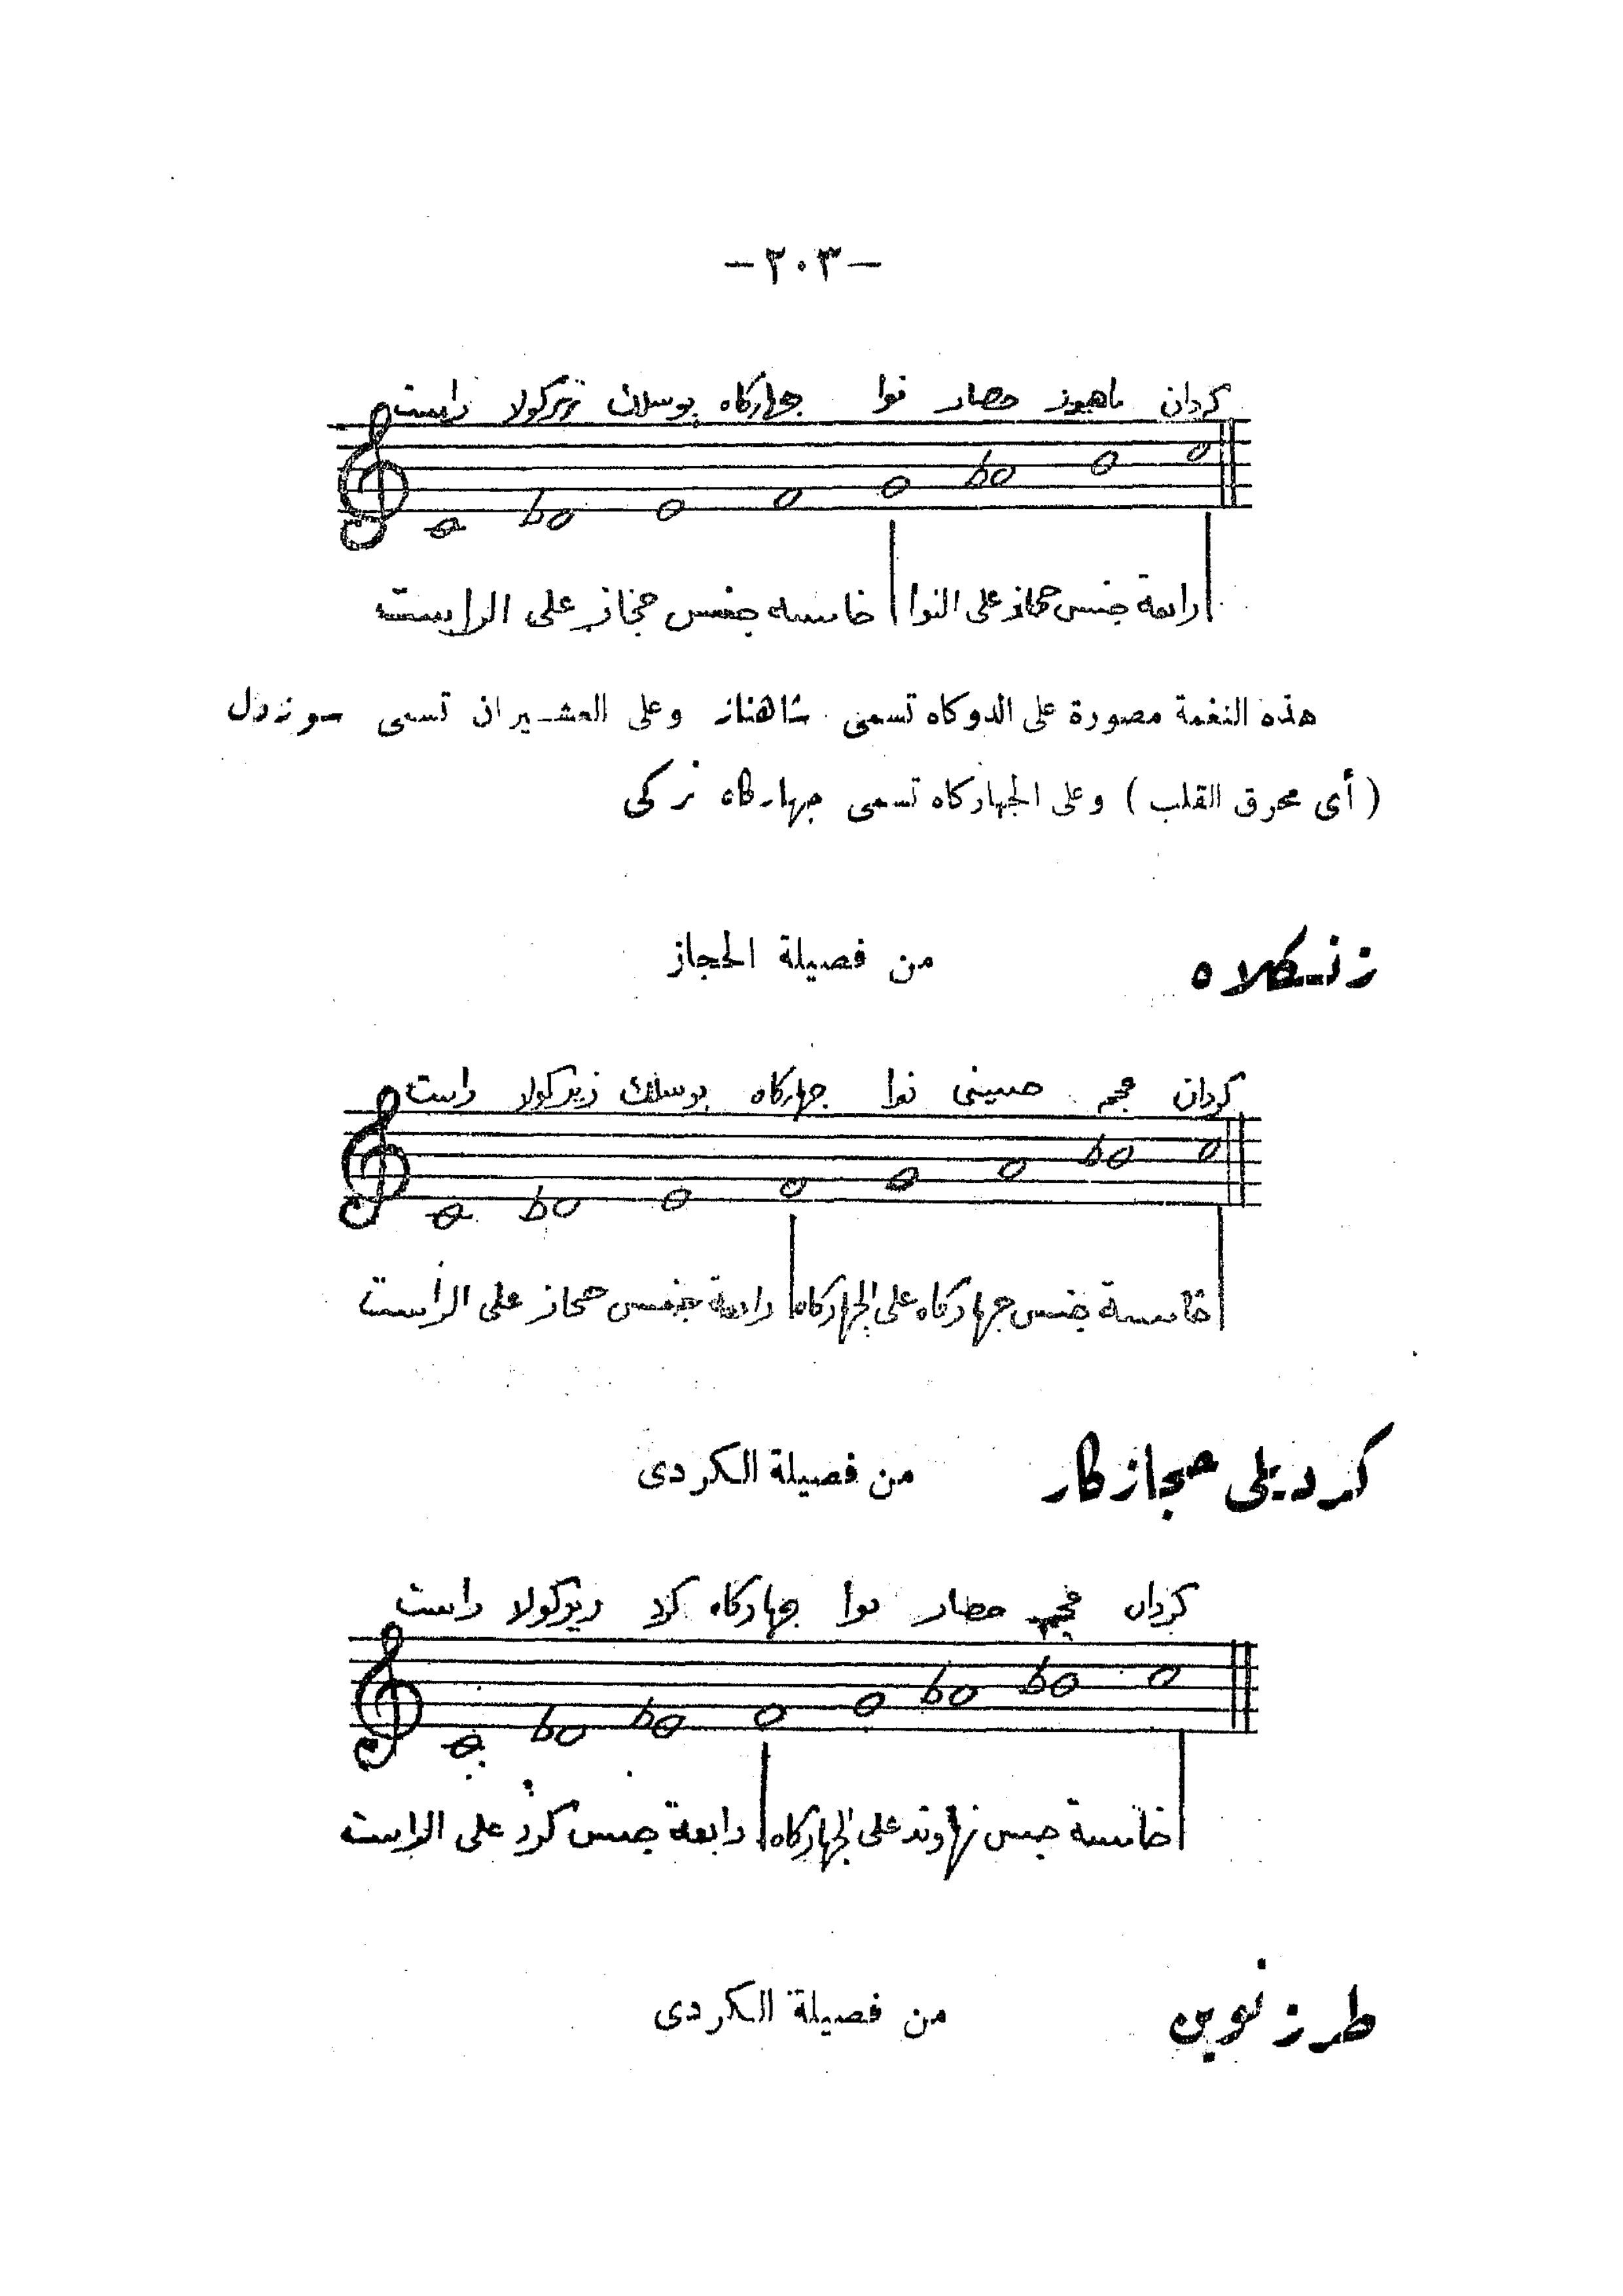 -٢٠٣-
كردان ماهور حصار نوا جهاركاه بوسلك زيركولا راست
رابعة جنس حجاز على النوا خامسه جنس حجاز على الراست
هذه النغمة مصورة على الدوكاه تسمى شاهناز وعلى العشيران تسمى سوزدل
( أى محرق القلب ) وعلى الجهاركاه تسمى جهاركاه تركى
زنكلاه من فصيلة الحجاز
كردان عجم حسينى نوا جهاركاه بوسلك زيركولا راست
خامسة جنس جهاركاه على الجهاركاه رابعة جنس حجاز على الراست
كرديلى حجازكار من فصيلة الكردى
كردان عجم حصار نوا جهاركاه كرد زيركولا راست
خامسة جنس نهاوند على الجهاركاه رابعة جنس كرد على الراست
طرز نوين من فصيلة الكردى